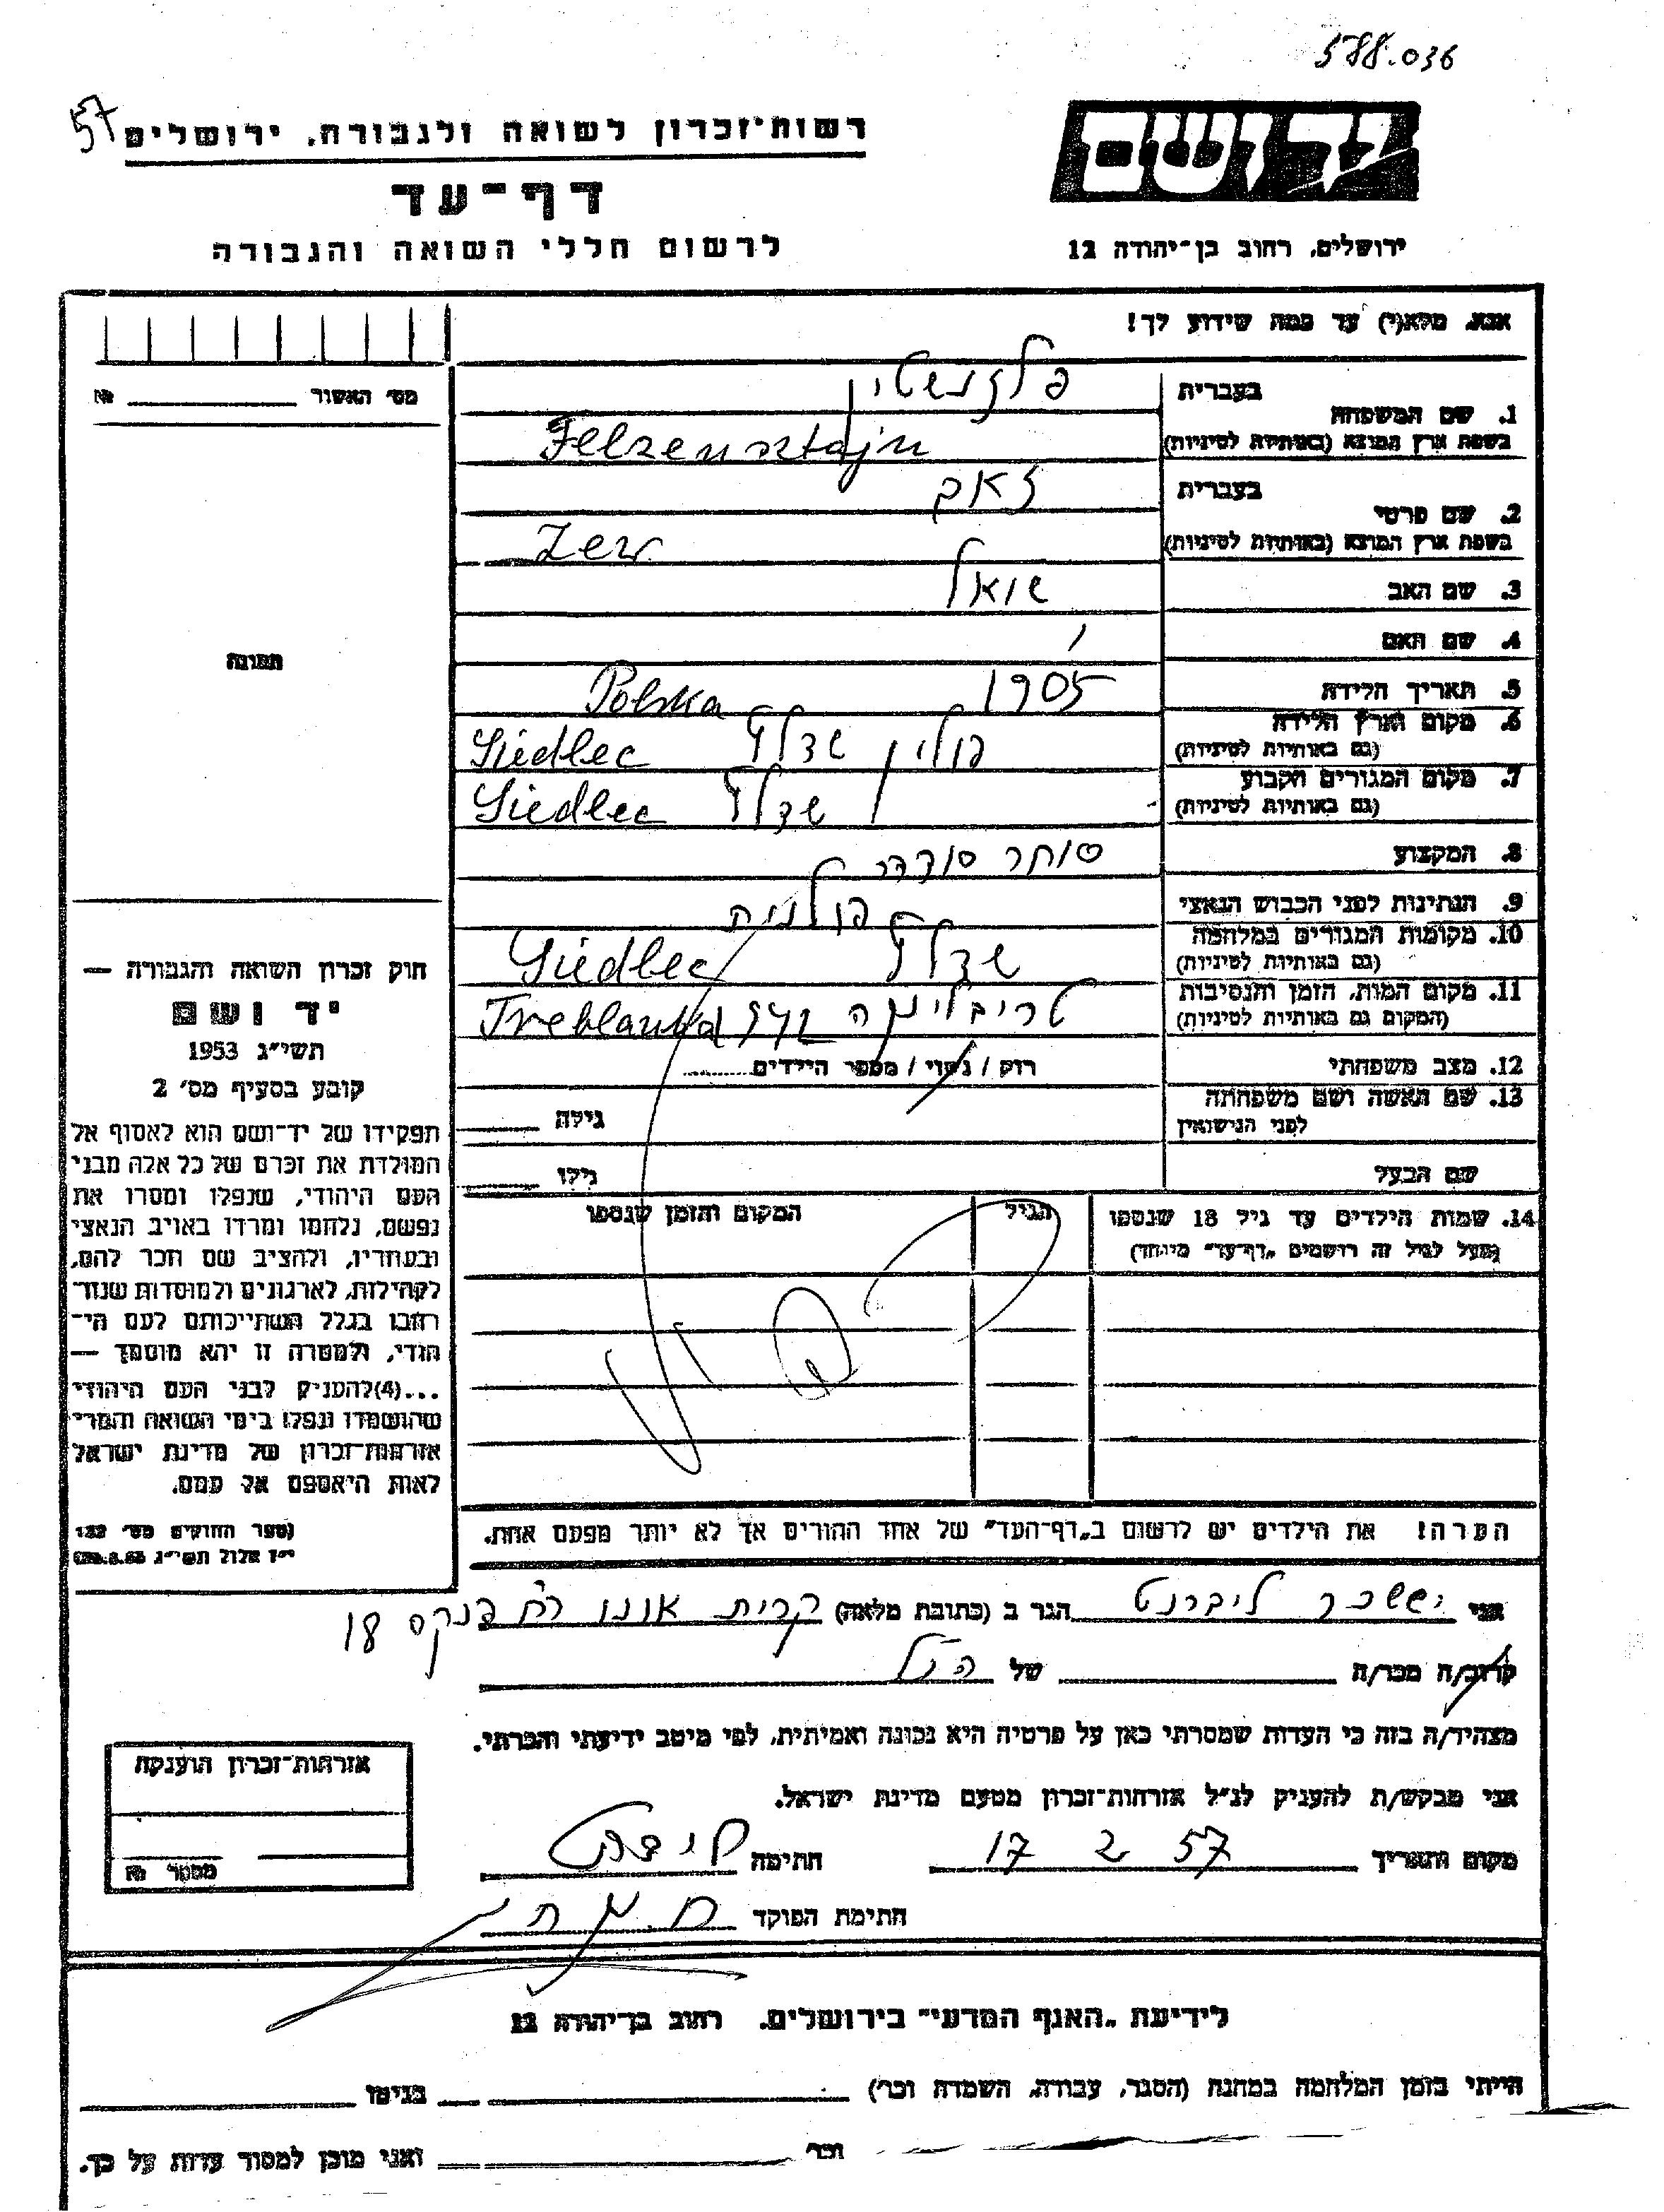 588.036
57
יד ושם
רשות־זכרון לשואה ולגבורה, ירושלים
דף־עד
ירושלים, רחוב בן־יהודה 12
לרשום חללי השואה והגבורה
אנא, מלא(י) עד כמה שידוע לך!
מס׳ האשור № 
1. שם המשפחה בעברית פלזנשטיין
בשפת ארץ המוצא (באותיות לטיניות) Felzensztajn
2. שם פרטי בעברית זאב
בשפת ארץ המוצא (באותיות לטיניות) Zew
3. שם האב שואל
4. שם האם
5. תאריך הלידה 1905
6. מקום וארץ הלידה פולין שדלץ Polska Siedlec
(גם באותיות לטיניות)
7. מקום המגורים הקבוע שדלץ Siedlec
(גם באותיות לטיניות)
8. המקצוע סוחר
9. הנתינות לפני הכבוש הנאצי פולנית
10. מקומות המגורים במלחמה שדלץ Siedlec
(גם באותיות לטיניות)
11. מקום המות, הזמן והנסיבות טריבלינקה 942 Treblanka
(המקום גם באותיות לטיניות)
12. מצב משפחתי רוק / נשוי / מספר הילדים
13. שם האשה ושם משפחתה גילה
לפני הנישואין
שם הבעל גילו
14. שמות הילדים עד גיל 18 שנספו הגיל המקום והזמן שנספו
(מעל לגיל זה רושמים „דף־עד” מיוחד)
הערה! את הילדים יש לרשום ב„דף־העד” של אחד ההורים אך לא יותר מפעם אחת.
תמונה
חוק זכרון השואה והגבורה —
יד ושם
תשי״ג 1953
קובע בסעיף מס׳ 2
תפקידו של יד־ושם הוא לאסוף אל
המולדת את זכרם של כל אלה מבני
העם היהודי, שנפלו ומסרו את
נפשם, נלחמו ומרדו באויב הנאצי
ובעוזריו, ולהציב שם וזכר להם,
לקהילות, לארגונים ולמוסדות שנח־
רבו בגלל השתייכותם לעם הי־
הודי, ולמטרה זו יהא מוסמך —
...(4)להעניק לבני העם היהודי
שהושמדו ונפלו בימי השואה והמרי
אזרחות־זכרון של מדינת ישראל
לאות היאספם אל עמם.
(ספר החוקים מס׳ 132
י״ז אלול תשי״ג
אני יששכר ליברנט הגר ב (כתובת מלאה) קרית אונו רח׳ פנקס 18
קרוב/ה מכר/ה של הנ״ל
מצהיר/ה בזה כי העדות שמסרתי כאן על פרטיה היא נכונה ואמיתית, לפי מיטב ידיעתי והכרתי.
אני מבקש/ת להעניק לנ״ל אזרחות־זכרון מטעם מדינת ישראל.
מקום ותאריך 17 2 57 חתימה
חתימת הפוקד
אזרחות־זכרון הוענקה
מספר №
לידיעת „האגף המדעי” בירושלים, רחוב בן־יהודה 12
הייתי בזמן המלחמה במחנה (הסגר, עבודה, השמדה וכו׳) בגיטו
וכו׳ ואני מוכן למסור עדות על כך.